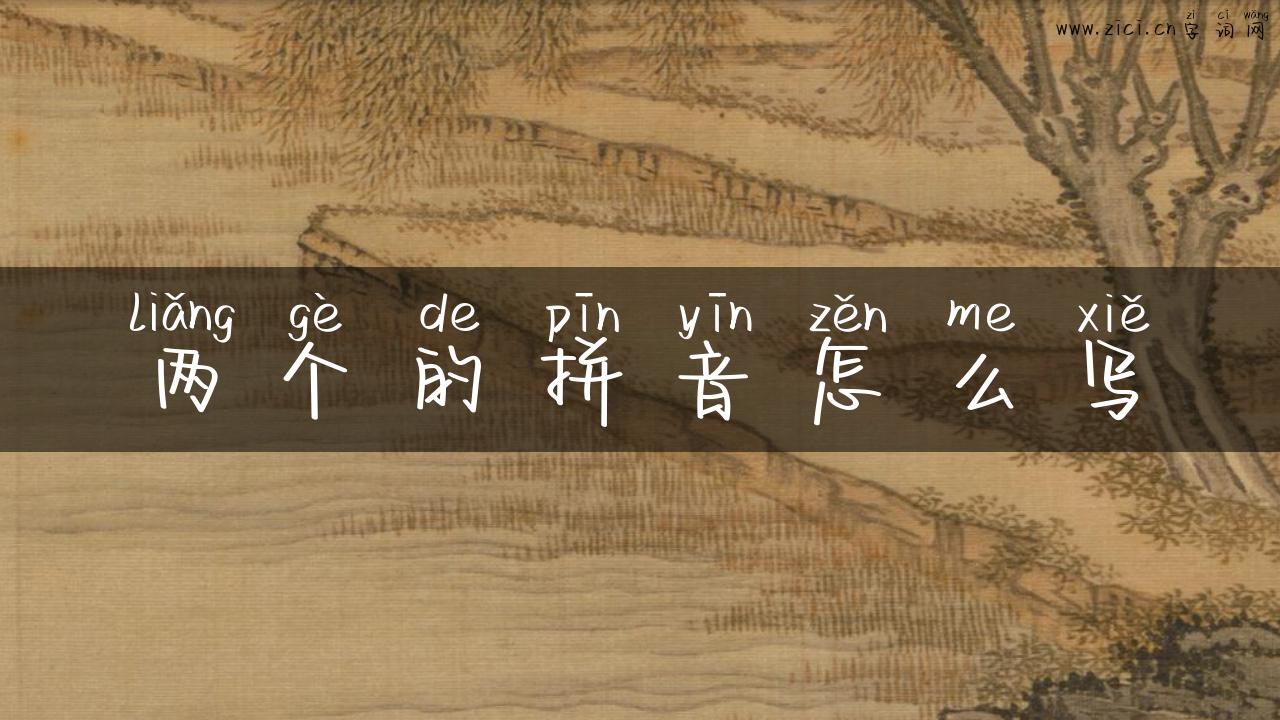 zì cí wǎng
www.zici.cn字词网
liǎng gè de pīn yīn zěn me xiě
两个的拼音怎么写